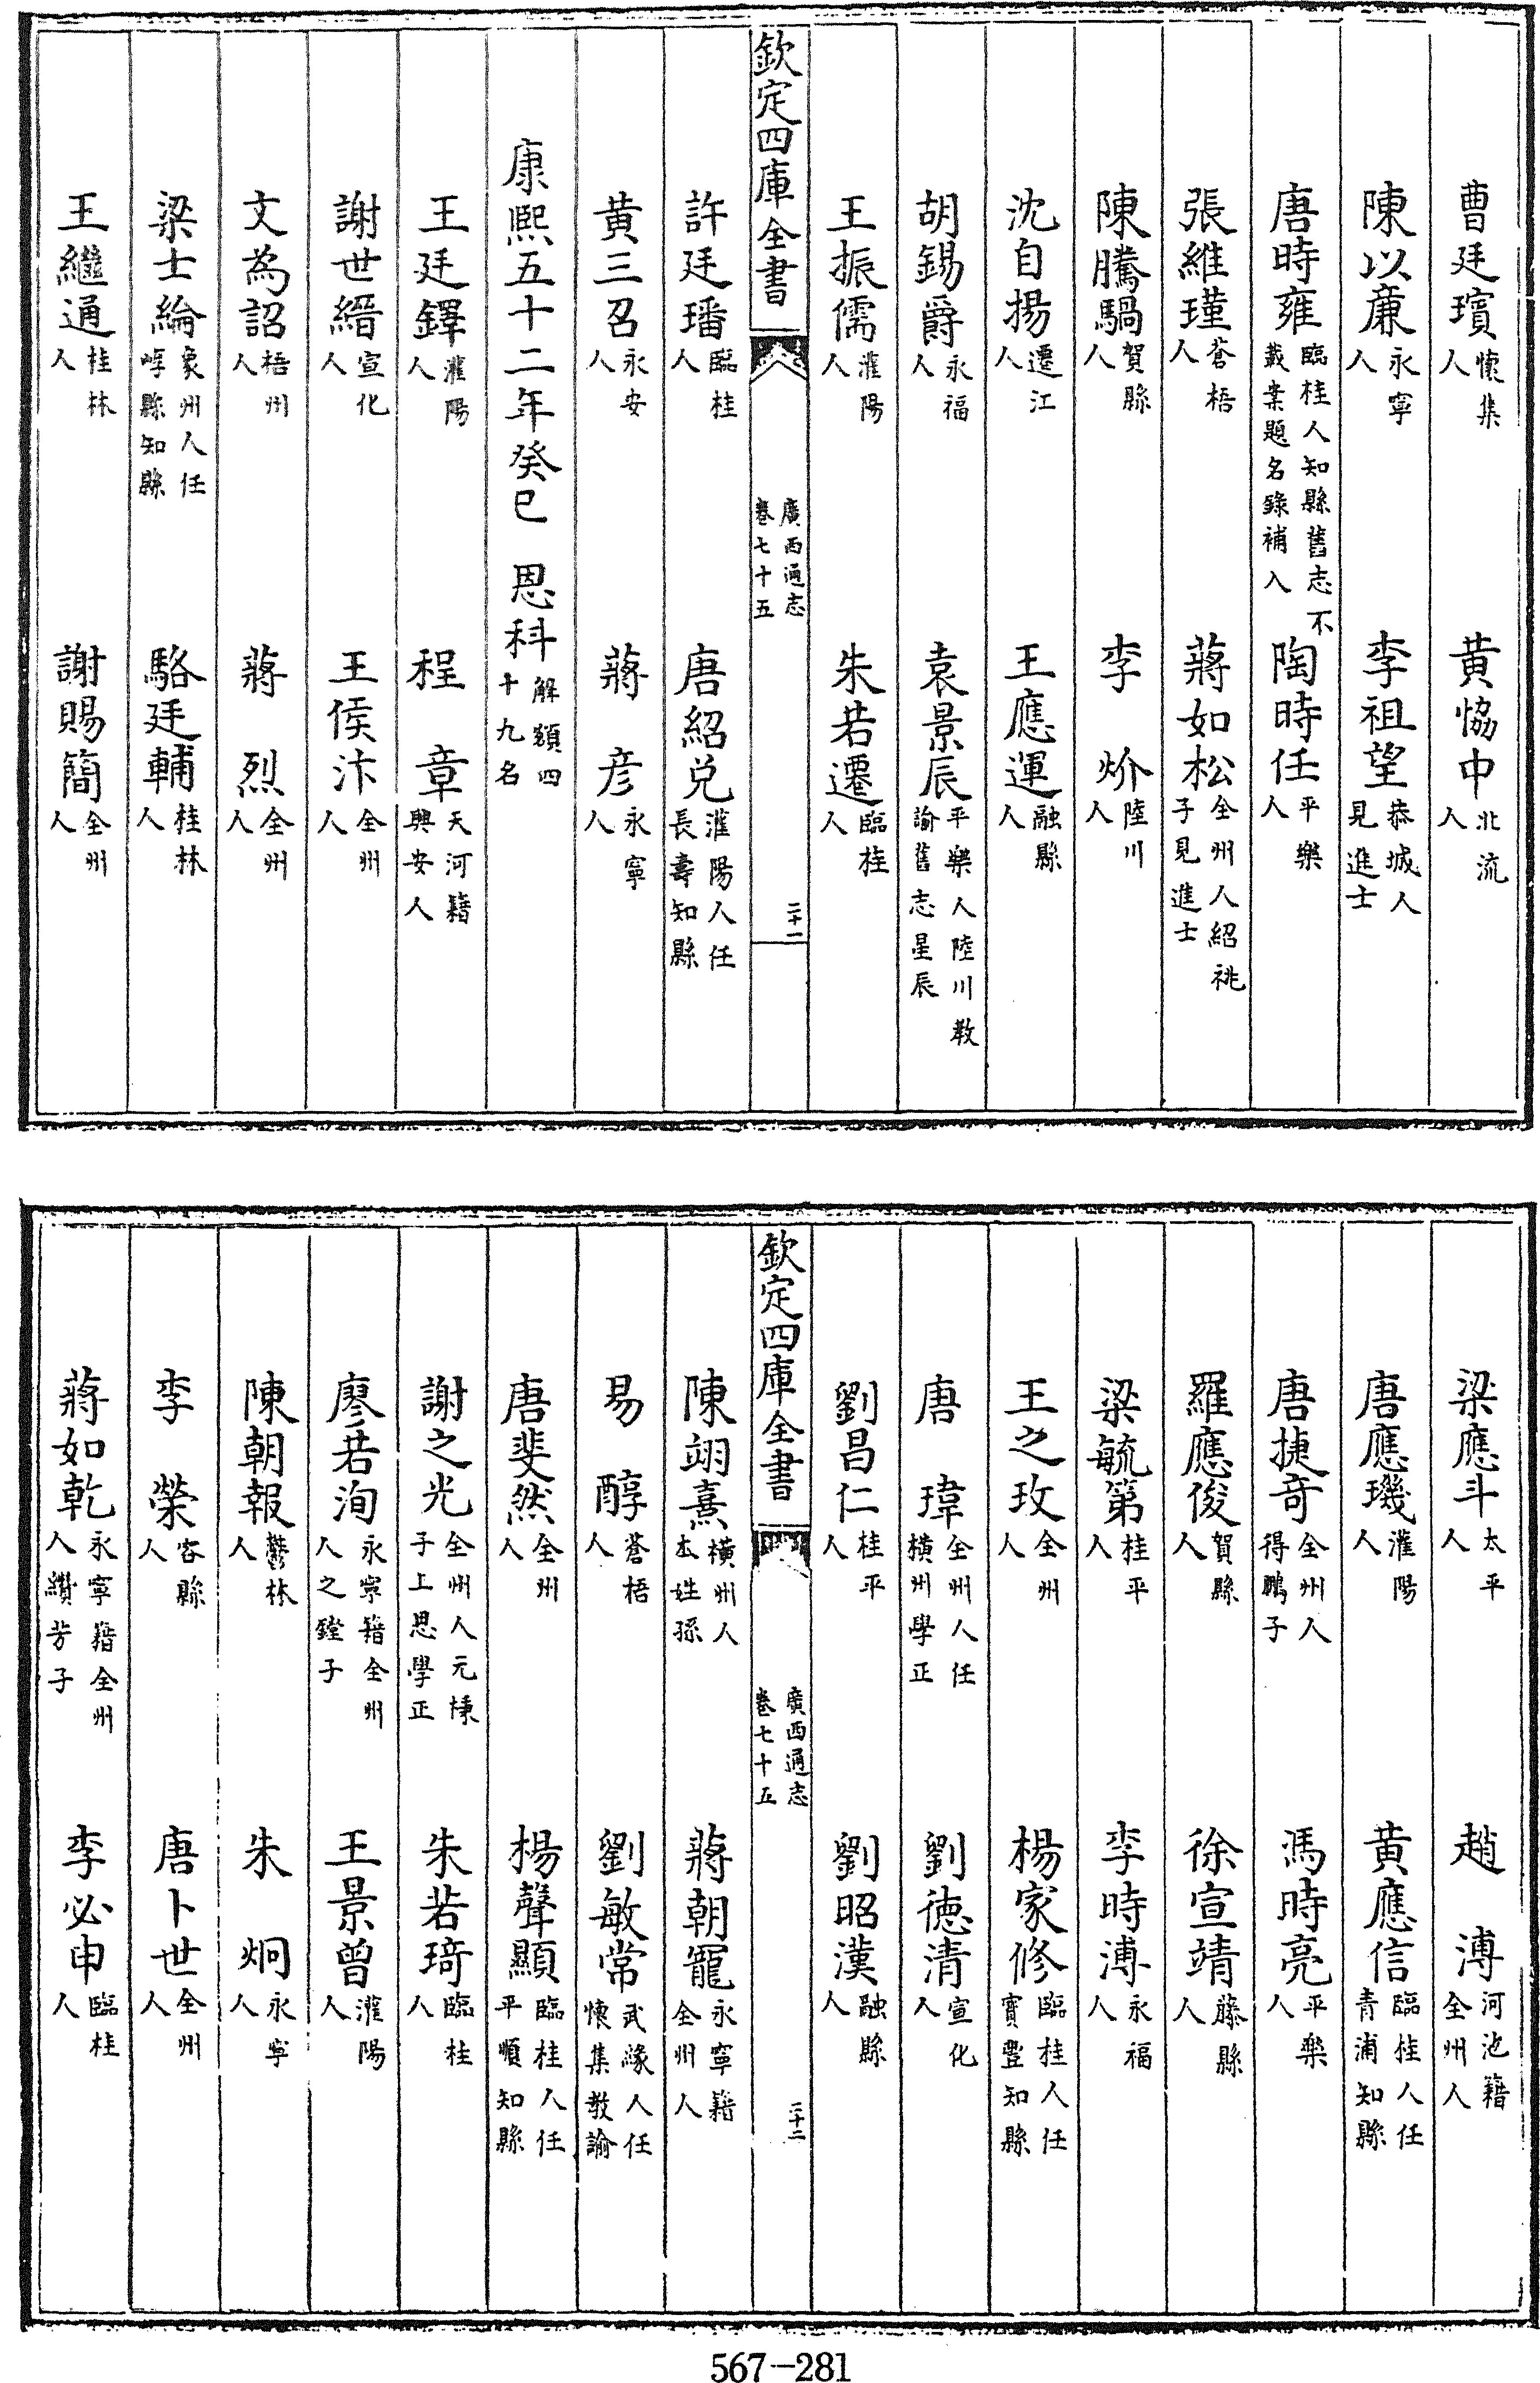 曹廷璸懷集人　黄恊中北流人
陳以亷永寧人　李祖望恭城人見進士
唐時雍臨桂人知縣舊志不載棄題名錄補入　陶時任平樂人
張維瑾蒼梧人　蔣如松全州人紹祧子見進士
陳騰騧賀縣人　李　炌陸川人
沈自揚遷江人　王應運融縣人
胡錫爵永福人　袁景辰平樂人陸川教諭舊志星辰
王振儒灌陽人　朱若遷臨桂人
欽定四庫全書　廣西通志卷七十五　二十一
許廷璠臨桂人　唐紹兑灌陽人任長壽知縣
黄三召永安人　蔣　彦永寧人
康熙五十二年癸巳　恩科解額四十九名
王廷鐸灌陽人　程　章天河籍興安人
謝世縉宣化人　王俟汴全州人
文為詔梧州人　蔣　烈全州人
梁士綸象州人任崞縣知縣　駱廷輔桂林人
王繼通桂林人　謝賜簡全州人
梁應斗太平人　趙　溥河池籍全州人
唐應璣灌陽人　黄應信臨桂人任青浦知縣
唐捷奇全州人得鵬子　馮時亮平樂人
羅應俊賀縣人　徐宣靖藤縣人
梁毓第桂平人　李時溥永福人
王之玫全州人　楊家修臨桂人任寳豐知縣
唐　瑋全州人任横州學正　劉徳清宣化人
劉昌仁桂平人　劉昭漢融縣人
欽定四庫全書　廣西通志卷七十五　二十二
陳翊熹横州人本姓孫　蔣朝寵永寧籍全州人
易　醇蒼梧人　劉敏常武緣人任懷集教諭
唐斐然全州人　楊聲顯臨桂人任平順知縣
謝之光全州人元棟子上思學正　朱若琦臨桂人
廖若洵永寧籍全州人之鏜子　王景曾灌陽人
陳朝報鬱林人　朱　炯永寧人
李　榮容縣人　唐卜世全州人
蔣如乾永寧籍全州人纘芳子　李必申臨桂人
567—281